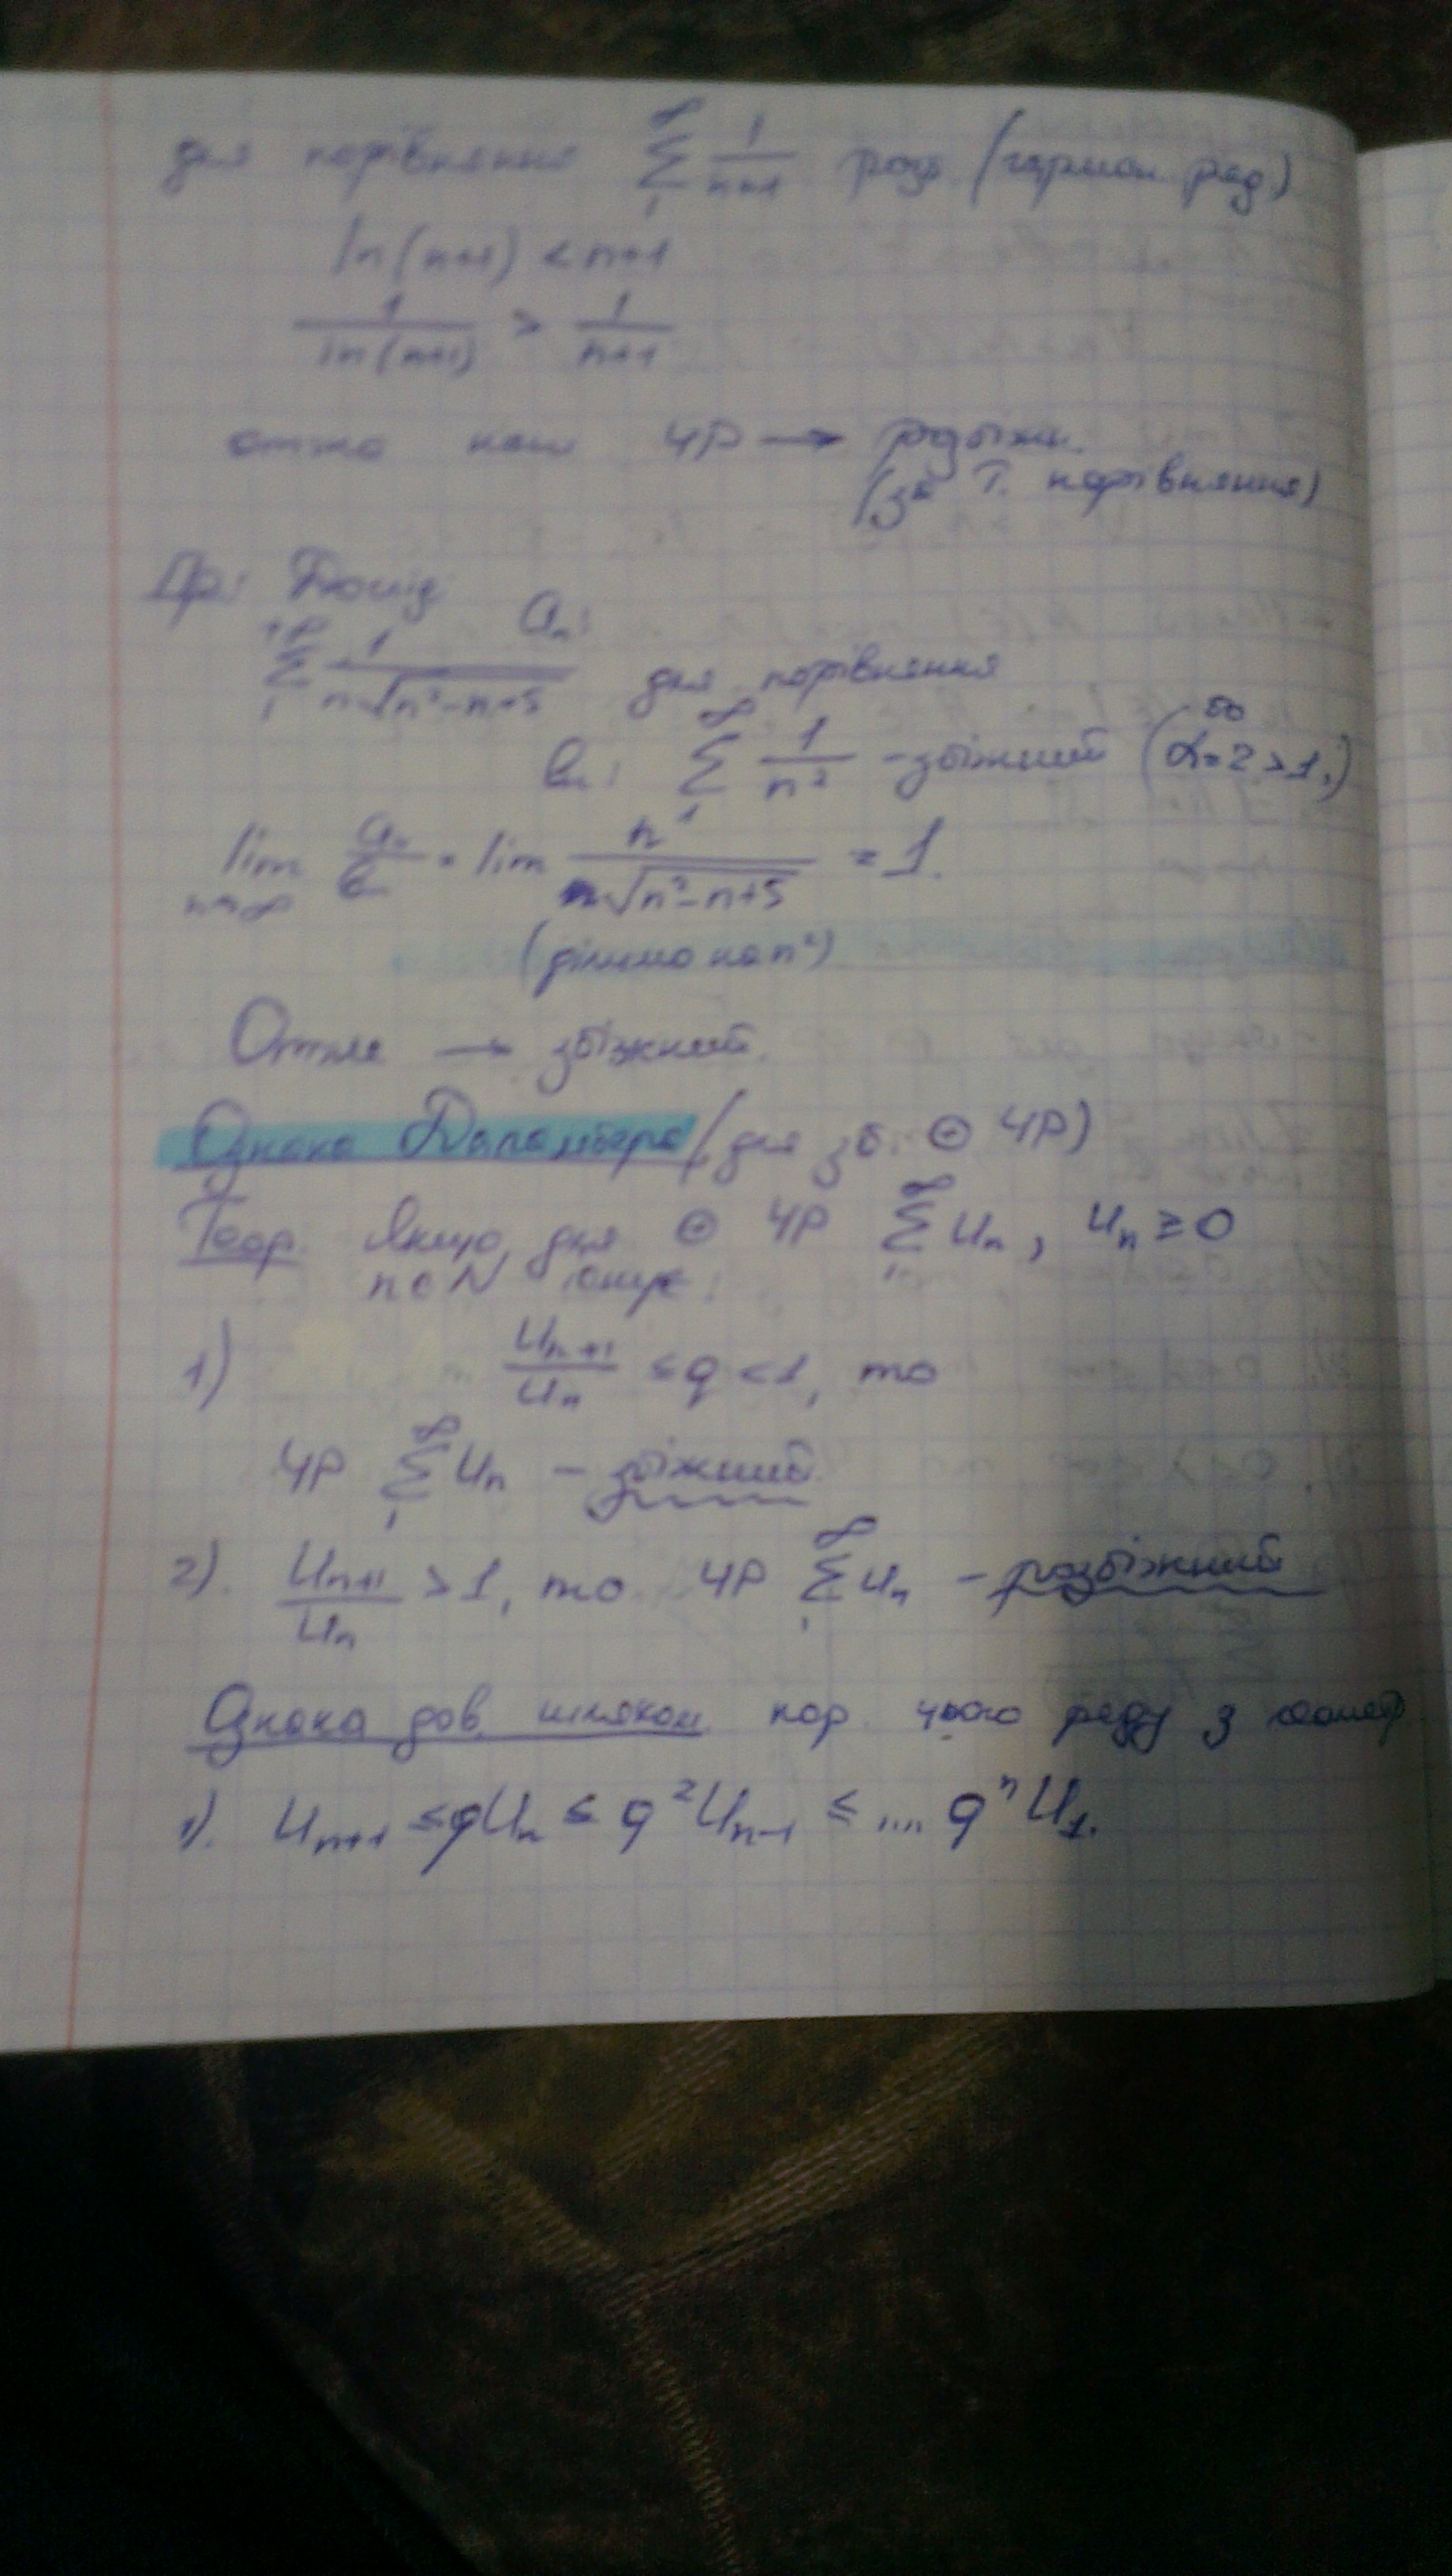 для порівняння ∑₁^∞ 1/(n+1) розб. (гармон. ряд)
ln(n+1) < n+1
1/ln(n+1) > 1/(n+1)
отже наш ЧР → розбіжн.
(за Т. порівняння)
Пр: Дослід
aₙ:
∑₁^{+∞} 1/(n√(n²-n+5)) для порівняння
bₙ: ∑₁^∞ 1/n² - збіжний (бо α=2>1.)
lim_{n→∞} aₙ/bₙ = lim n²/(n√(n²-n+5)) = 1.
(ділимо на n²)
Отже → збіжний.
Ознака Даламбера (для зб. ⊕ ЧР)
Теор. Якщо для ⊕ ЧР ∑₁^∞ uₙ, uₙ ≥ 0
n∈N існує:
1) uₙ₊₁/uₙ ≤ q < 1, то
ЧР ∑₁^∞ uₙ - збіжний.
2). uₙ₊₁/uₙ > 1, то ЧР ∑₁^∞ uₙ - розбіжний
Ознака дов. шляхом пор. цього ряду з геометр
1). uₙ₊₁ ≤ quₙ ≤ q²uₙ₋₁ ≤ .... qⁿu₁.